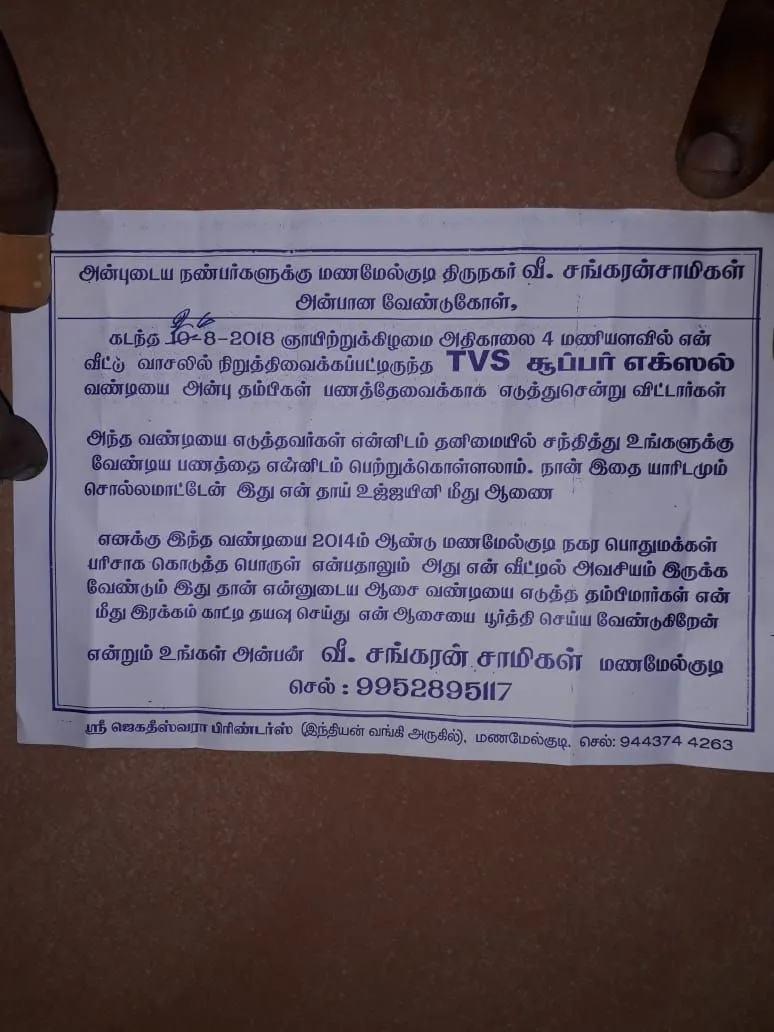 அன்புடைய நண்பர்களுக்கு மணமேல்குடி திருநகர் வீ. சங்கரன்சாமிகள்
அன்பான வேண்டுகோள்,
கடந்த 10-8-2018 ஞாயிற்றுக்கிழமை அதிகாலை 4 மணியளவில் என்
வீட்டு வாசலில் நிறுத்திவைக்கப்பட்டிருந்த TVS சூப்பர் எக்ஸல்
வண்டியை அன்பு தம்பிகள் பணத்தேவைக்காக எடுத்துசென்று விட்டார்கள்
அந்த வண்டியை எடுத்தவர்கள் என்னிடம் தனிமையில் சந்தித்து உங்களுக்கு
வேண்டிய பணத்தை என்னிடம் பெற்றுக்கொள்ளலாம். நான் இதை யாரிடமும்
சொல்லமாட்டேன் இது என் தாய் உஜ்ஜயினி மீது ஆணை
எனக்கு இந்த வண்டியை 2014ம் ஆண்டு மணமேல்குடி நகர பொதுமக்கள்
பரிசாக கொடுத்த பொருள் என்பதாலும் அது என் வீட்டில் அவசியம் இருக்க
வேண்டும் இது தான் என்னுடைய ஆசை வண்டியை எடுத்த தம்பிமார்கள் என்
மீது இரக்கம் காட்டி தயவு செய்து என் ஆசையை பூர்த்தி செய்ய வேண்டுகிறேன்
என்றும் உங்கள் அன்பன் வீ. சங்கரன் சாமிகள் மணமேல்குடி
செல் : 9952895117
ஸ்ரீ ஜெகதீஸ்வரா பிரிண்டர்ஸ் (இந்தியன் வங்கி அருகில்), மணமேல்குடி. செல்: 944374 4263